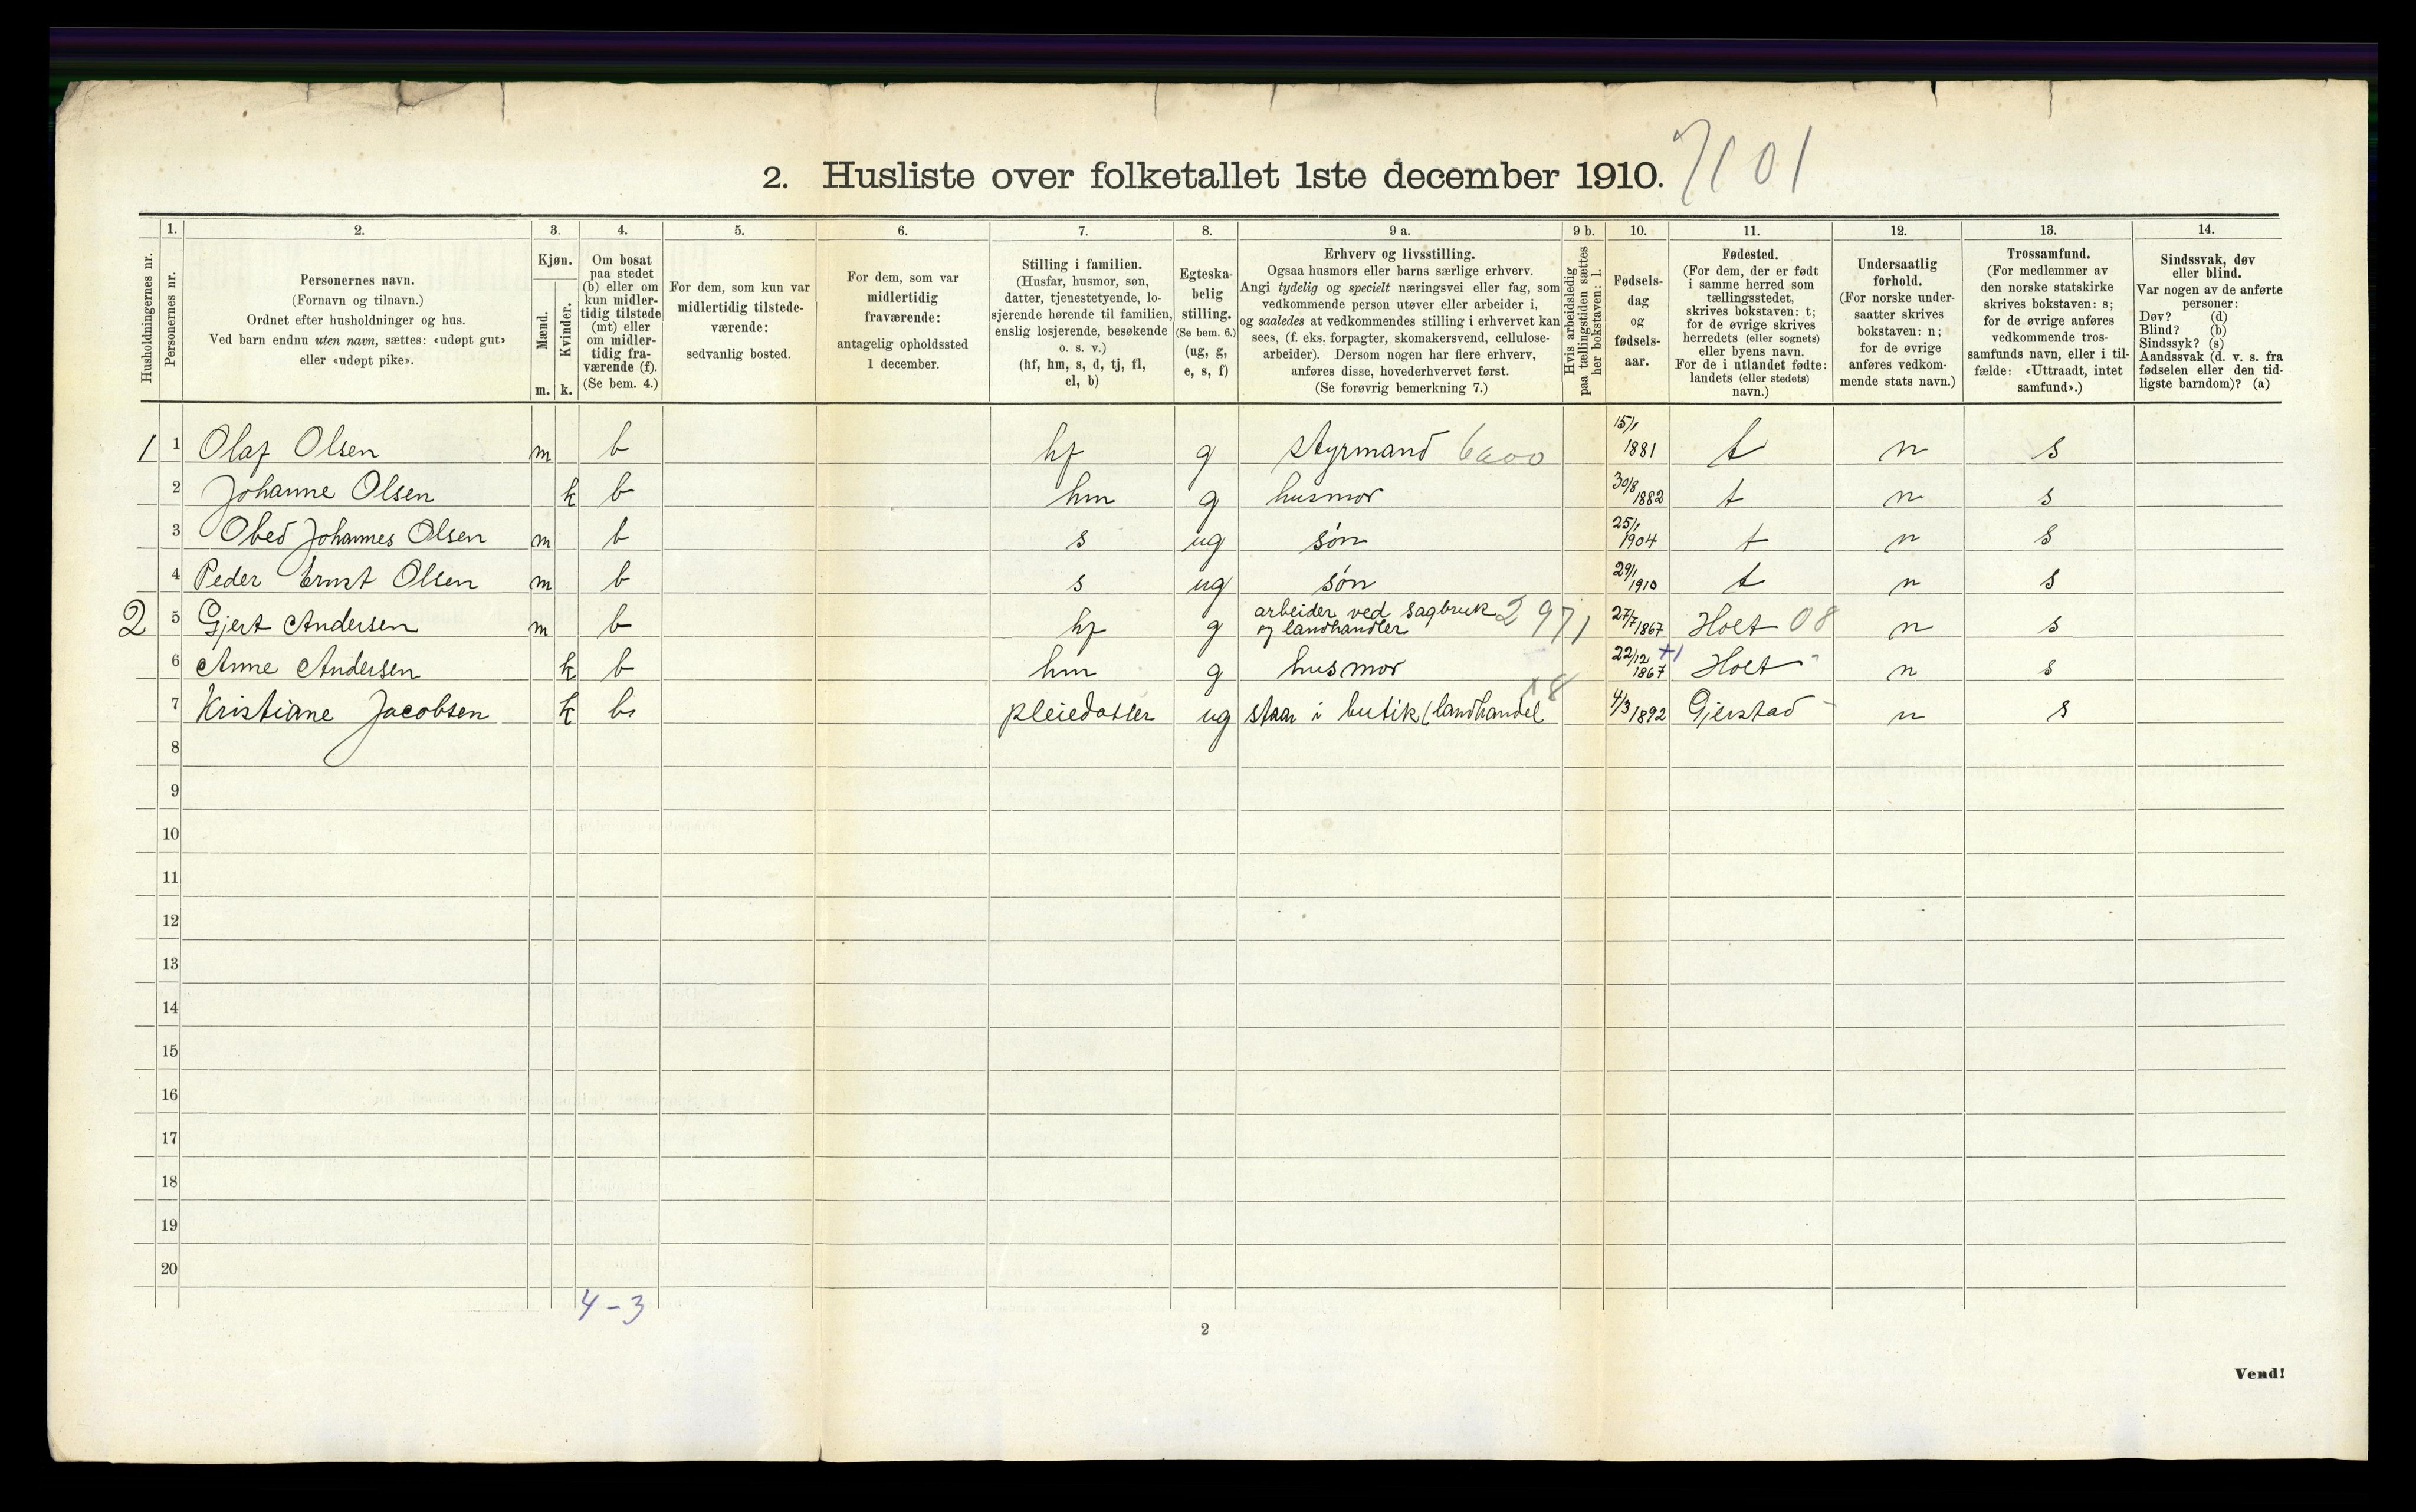 2. Husliste over folketallet 1ste december 1910. 7101
Husholdningernes nr.
1. Personernes nr.
2. Personernes navn.
(Fornavn og tilnavn.)
Ordnet efter husholdninger og hus.
Ved barn endnu uten navn, sættes: «udøpt gut»
eller «udøpt pike».
3. Kjøn.
Mænd. m.
Kvinder. k.
4. Om bosat
paa stedet
(b) eller om
kun midler-
tidig tilstede
(mt) eller
om midler-
tidig fra-
værende (f).
(Se bem. 4.)
5. For dem, som kun var
midlertidig tilstede-
værende:
sedvanlig bosted.
6. For dem, som var
midlertidig
fraværende:
antagelig opholdssted
1 december.
7. Stilling i familien.
(Husfar, husmor, søn,
datter, tjenestetyende, lo-
sjerende hørende til familien,
enslig losjerende, besøkende
o. s. v.)
(hf, hm, s, d, tj, fl,
el, b)
8. Egteska-
belig
stilling.
(Se bem. 6.)
(ug, g,
e, s, f)
9 a. Erhverv og livsstilling.
Ogsaa husmors eller barns særlige erhverv.
Angi tydelig og specielt næringsvei eller fag, som
vedkommende person utøver eller arbeider i,
og saaledes at vedkommendes stilling i erhvervet kan
sees, (f. eks. forpagter, skomakersvend, cellulose-
arbeider). Dersom nogen har flere erhverv,
anføres disse, hovederhvervet først.
(Se forøvrig bemerkning 7.)
9 b. Hvis arbeidsledig
paa tællingstiden sættes
her bokstaven: l.
10. Fødsels-
dag
og
fødsels-
aar.
11. Fødested.
(For dem, der er født
i samme herred som
tællingsstedet,
skrives bokstaven: t;
for de øvrige skrives
herredets (eller sognets)
eller byens navn.
For de i utlandet fødte:
landets (eller stedets)
navn.)
12. Undersaatlig
forhold.
(For norske under-
saatter skrives
bokstaven: n;
for de øvrige
anføres vedkom-
mende stats navn.)
13. Trossamfund.
(For medlemmer av
den norske statskirke
skrives bokstaven: s;
for de øvrige anføres
vedkommende tros-
samfunds navn, eller i til-
fælde: «Uttraadt, intet
samfund».)
14. Sindssvak, døv
eller blind.
Var nogen av de anførte
personer:
Døv? (d)
Blind? (b)
Sindssyk? (s)
Aandssvak (d. v. s. fra
fødselen eller den tid-
ligste barndom)? (a)
1 1 Olaf Olsen m b hf g styrmand 6600 15/1 1881 t n s
2 Johanne Olsen k b hm g husmor 30/8 1882 t n s
3 Obed Johannes Olsen m b s ug søn 25/1 1904 t n s
4 Peder Ernst Olsen m b s ug søn 29/1 1910 t n s
2 5 Gjert Andersen m b hf g arbeider ved sagbruk og landhandler 2971 27/7 1867 Holt 08 n s
6 Anne Andersen k b hm g husmor 22/12 1867 +1 Holt " n s
7 Kristiane Jacobsen k b pleiedatter ug staar i butik (landhandel x8 4/3 1892 Gjerstad - n s
8
9
10
11
12
13
14
15
16
17
18
19
20
4-3
2
Vend!